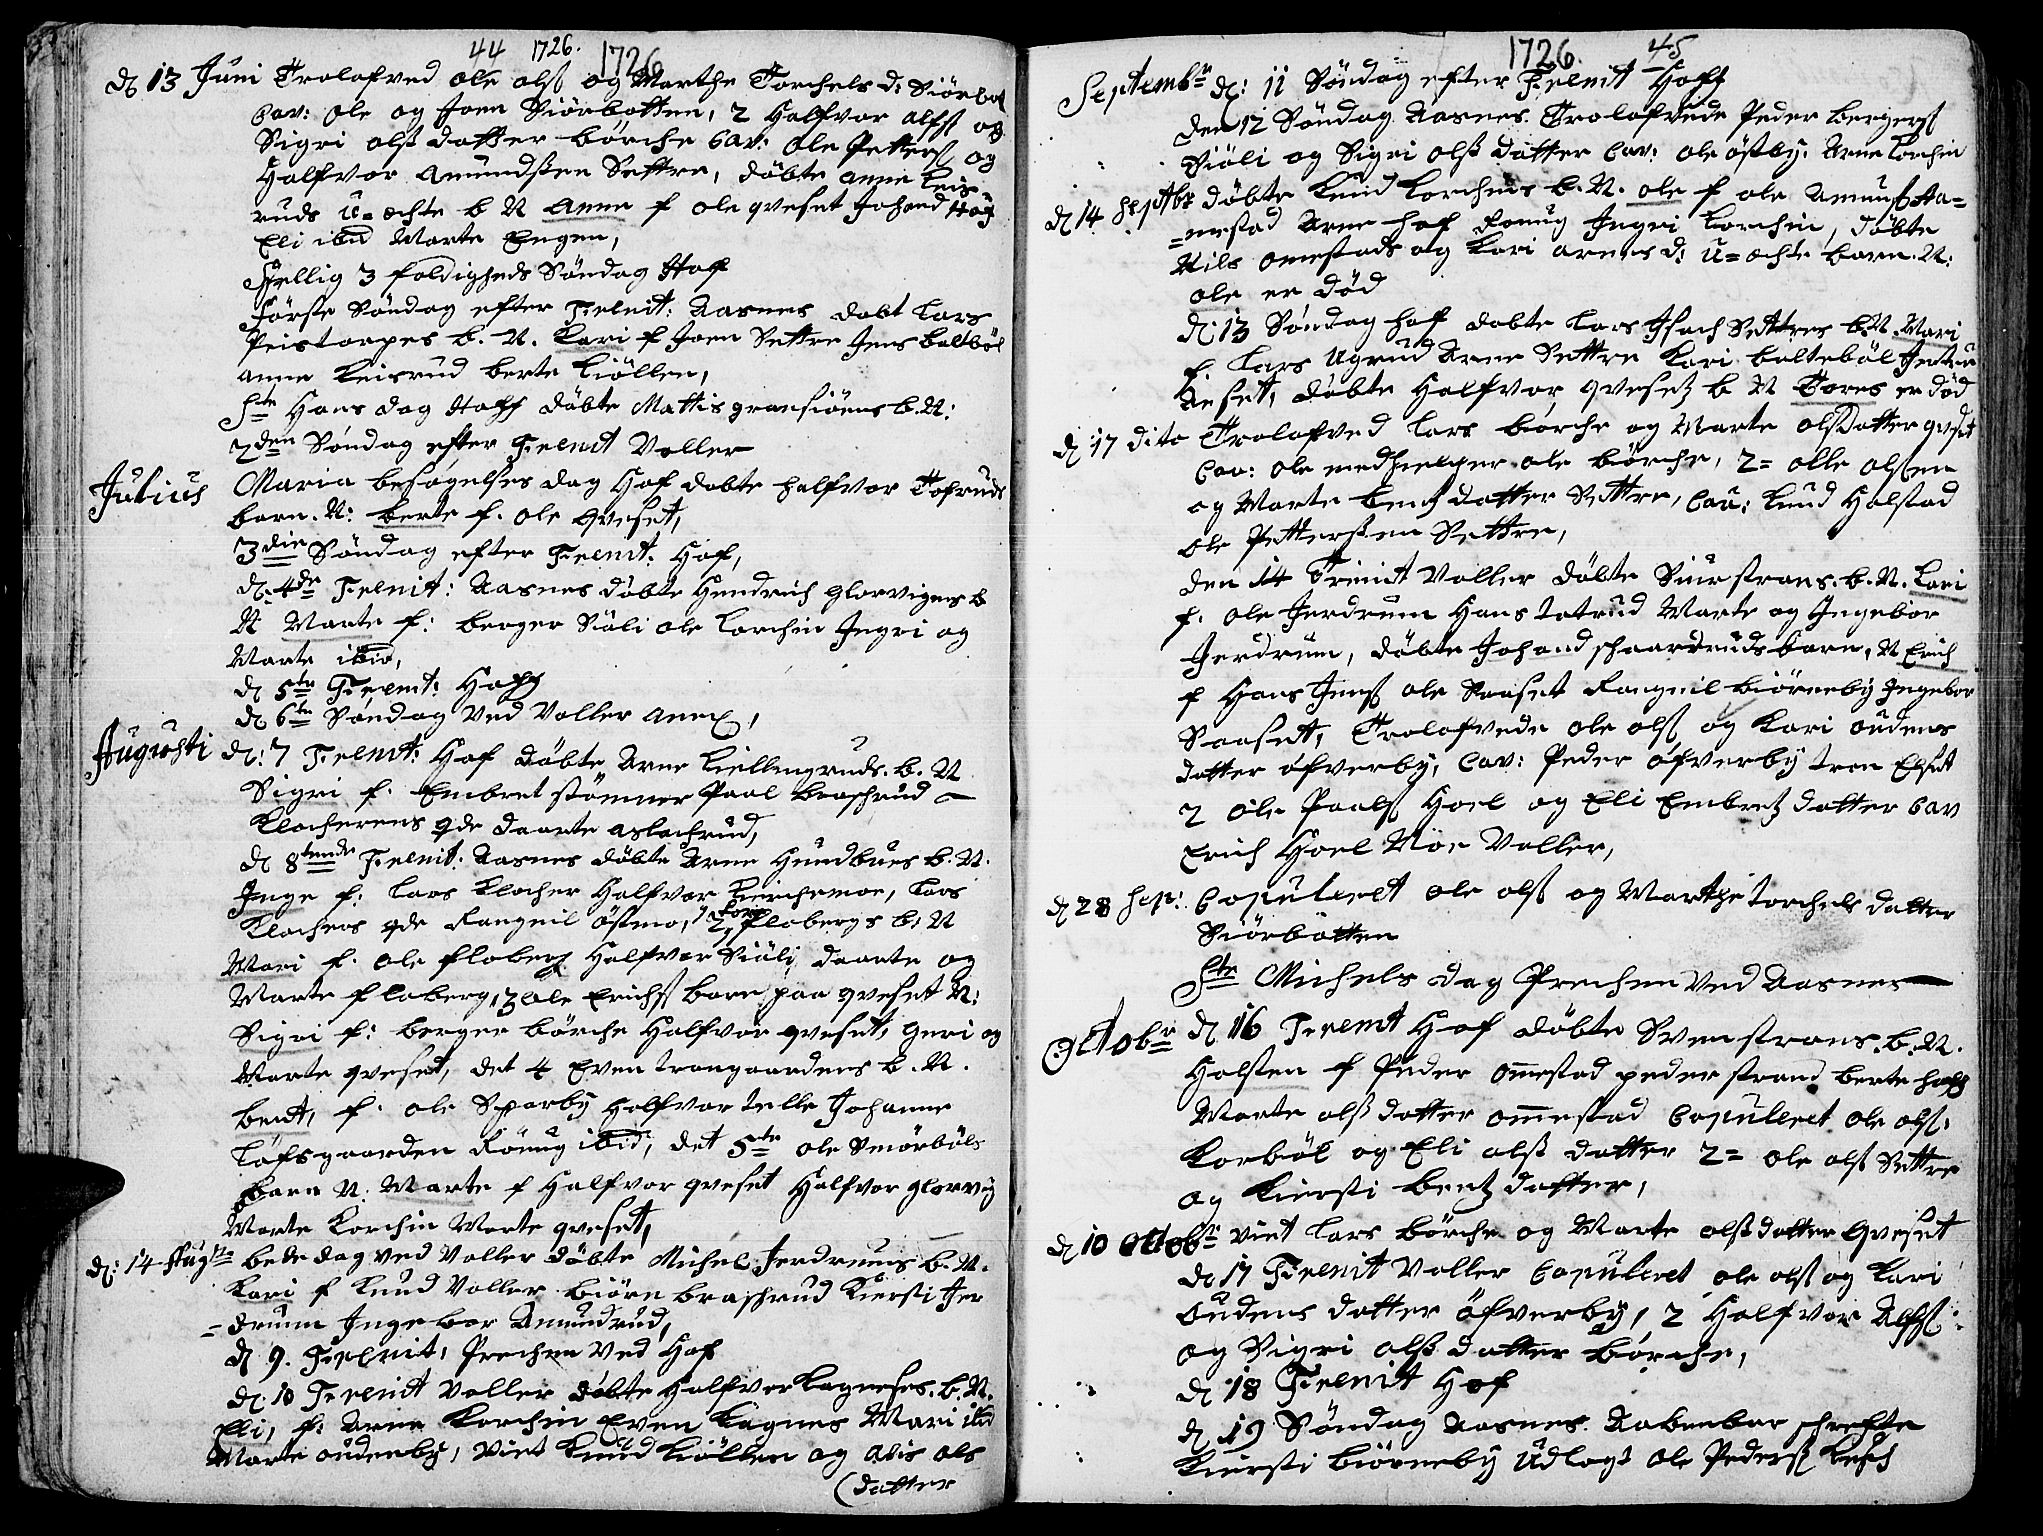 44 1726. 1726
d 13 Juni Trolofved ole olß og Marthe Torchels d: Siörbot
Cav: ole og Joen Siörbotten, 2 Halfvor olß og
Sigri olß datter börche Cav: Ole Petterß og
Halfvor Amundßen Settre, döbte anne Leis
ruds u=ächte b N Anne f ole qveset Johand Hof
Eli ibid Marte Engen,
Hellig 3 foldigheds Söndag Hof
Förste Söndag efter Trenit: Aasnes döbt Lars
Peistorpes b. N. Kari f Joen Settre Jens balböl
anne Leisrud berte Kiöllen,
Ste Hans dag Hoff döbte Mattis gransiöens b. N:
2den Söndag efter Trenit Voller
Julius Maria besögelses dag Hof döbte halfvor Tofruds
barn. N: berte f. ole qveset,
3die Söndag efter Trenit: Hof,
d. 4de Trenit: Aasnes döbte Hendrich glorvigens b
N Marte f: berger Siöli ole Lorchin Ingri og
Marte ibid,
d 5te Trenit: Hoff
d 6te Söndag Ved Voller annex,
Augusti d: 7 Trenit: Hof döbte Arne Kiellingruds. b. N
Sigri f. Embret stömner Paal braschrud
Klocherens qde daarte aslachrud,
d 8tende Trenit: Aasnes döbte Arne Hundbues b. N.
Inge f: Lars Klocher Halfvor Kierchemoe, Lars
Klochers qde Rangnil östmo, 2, flobergs b: N
Mari f. ole floberg Halfvor Siöli daarte og
Marte floberg, 3 ole Erichß barn paa qveset N:
Sigri f: berger börche Halfvor qveset, guri og
Marte qveset, det 4 Even trangaardens b. N.
bent, f. ole Sparby Halfvor telle Johanne
Löfsgaarden Rönug ibid, det 5te ole Smörböls
barn N: Marte f Halfvor qveset Halfvor glorvig
Marte Lorchin Marte qveset,
d: 14 Augste bededag ved Voller döbte Michel Jerdrums b. N.
Kari f Knud Voller biörn braschrud Kiersti Jer
=drum Ingebor Amundrud,
d 9. Trenit, Prechen Ved Hof
d 10 Trenit Voller döbte Halfvor Lagneses. b. N.
Eli, f: Arne Lorchin Even Lagnes Mari ibid
Marte oudenby, Viet Knud Kiöllen og Alis ols
(datter
1726 45
Septembr d: 11 Söndag efter Trenit Hoff
den 12 Söndag Aasnes Trolofvede Peder bergerß
Siöli og Sigri olß datter Cav: ole östby. Arne Lorchin
d 14 Septbr döbte Knud Lorchens b. N. ole f ole Amunß Ha=
=mestad Arne Hof Rönug Ingri Lorchin, döbte
Nils omestads og Kari arnes d: u=ächte barn. N:
ole er död
d: 13 Söndag Hof döbte Lars Isach Settres b. N. Mari
f. Lars Ugrud Arne Settre Kari balteböl Jertru
Aaset, döbte Halfvor qvesetz b N Tores er död
d 17 dito Trolofved Lars börche og Marte olsdatter qvset
Cav: ole medhielper ole börche, 2= olle olßen
og Marte bentz datter Settre, Cav: Knud Holstad
ole Petterßen Settre,
den 14 Trinit Voller döbte Siur strans. b. N. Kari
f. ole Jerdrum Hans tatrud Marte og Ingebor
Jerdrum, döbte Johand schaardruds barn. N Erich
f Hans Jenß ole Saaset Rangnil biörneby Ingebor
Saaset, Trolofvede ole olß og Kari oudens
datter öfverby, Cav: Peder öfverby tron Elset
2 ole Paalß Hoel og Eli Embretz datter Cav
Erich Hoel Moe Voller,
d 28 Sep: Copuleret ole olß og Marthe torchels datter
Siörbotten
Ste Michels dag Prechen Ved Aasnes
Octobr d 16 Trenit Hof döbte Sven strans. b. N.
Holsten f Peder ommestad peder strand berte hoff
Marte olß datter ommestad Copuleret ole olß,
Korböl og Eli olß datter 2= ole olß Settre
og Kiersti bentz datter,
d 10 Octobr viet Lars börche og Marte olß datter Qveset
d 17 Trenit Voller Copuleret ole olß og Kari
oudens datter öfverby, 2 Halfvor Alfß
og Sigri olß datter börche,
d 18 Trenit Hof
d 19 Söndag Aasnes. Aabenbar schrefte
Kiersti biörneby Udlagt ole Pederß